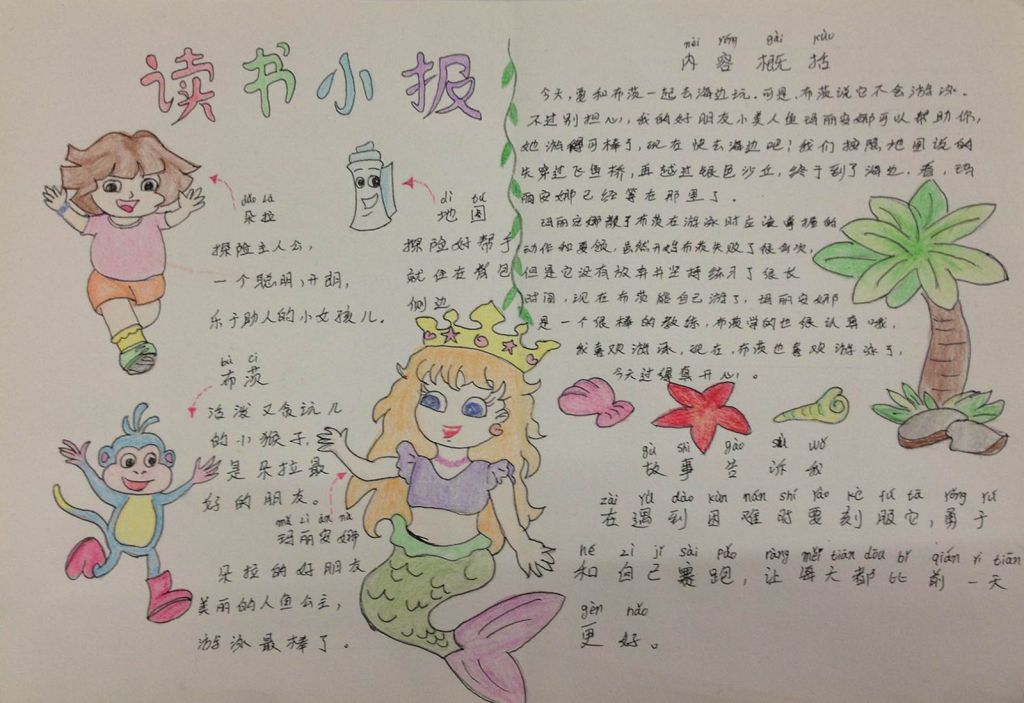 读书小报
duǒ lā
朵拉
探险主人公,
一个聪明,开朗,
乐于助人的小女孩儿。
dì tú
地图
探险好帮手
就住在背包
侧边
bù cí
布茨
活泼又贪玩儿
的小猴子,
是朵拉最
好的朋友。
mǎ lì ān nà
玛丽安娜
朵拉的好朋友
美丽的人鱼公主,
游泳最棒了。
nèi róng gài kuò
内容概括
今天,要和布茨一起去海边玩.可是,布茨说它不会游泳.
不过别担心,我的好朋友小美人鱼玛丽安娜可以帮助你,
她游得可棒了,现在快去海边吧!我们按照地图说的
先穿过飞鱼桥,再越过银色沙丘,终于到了海边.看,玛
丽安娜已经等在那里了.
玛丽安娜教了布茨在游泳时应该掌握的
动作和要领,虽然开始布茨失败了很多次,
但是它没有放弃并坚持练习了很长
时间,现在布茨能自己游了,玛丽安娜
是一个很棒的教练,布茨学的也很认真哦,
我喜欢游泳,现在,布茨也喜欢游泳了,
今天过得真开心!。
gù shì gào sù wǒ
故事告诉我
zài yù dào kùn nán shí yào kè fú tā yǒng yú
在遇到困难时要刻服它,勇于
hé zì jǐ sài pǎo, ràng měi tiān dōu bǐ qián yì tiān
和自己赛跑,让每天都比前一天
gèn hǎo
更好。